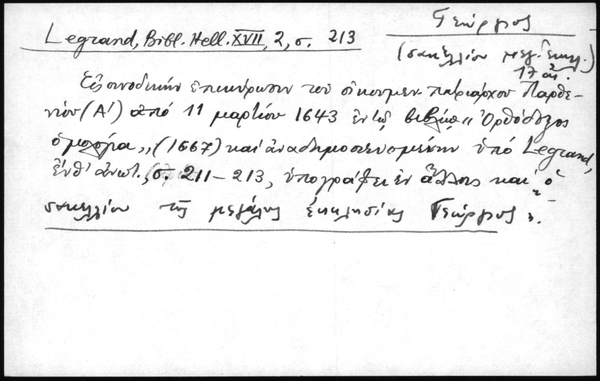 Legrand, Bibl. Hell. XVII, 2, σ. 213
Γεώργιος
(σακελλίου μεγ. ἐκκλ.)
17 αἰ.
Εἰς συνοδικὴν ἐπικύρωσιν τοῦ οἰκουμεν. πατριάρχου Παρθε-
νίου (Α') ἀπὸ 11 μαρτίου 1643 ἐν τῷ βιβλίῳ «Ὀρθόδοξος
ὁμολογία» (1667) καὶ ἀναδημοσιευομένην ὑπὸ Legrand,
ἔνθ' ἀνωτ., σ. 211-213, ὑπογράφει ἐν ἄλλοις καὶ «ὁ
σακελλίου τῆς μεγάλης ἐκκλησίας Γεώργιος».